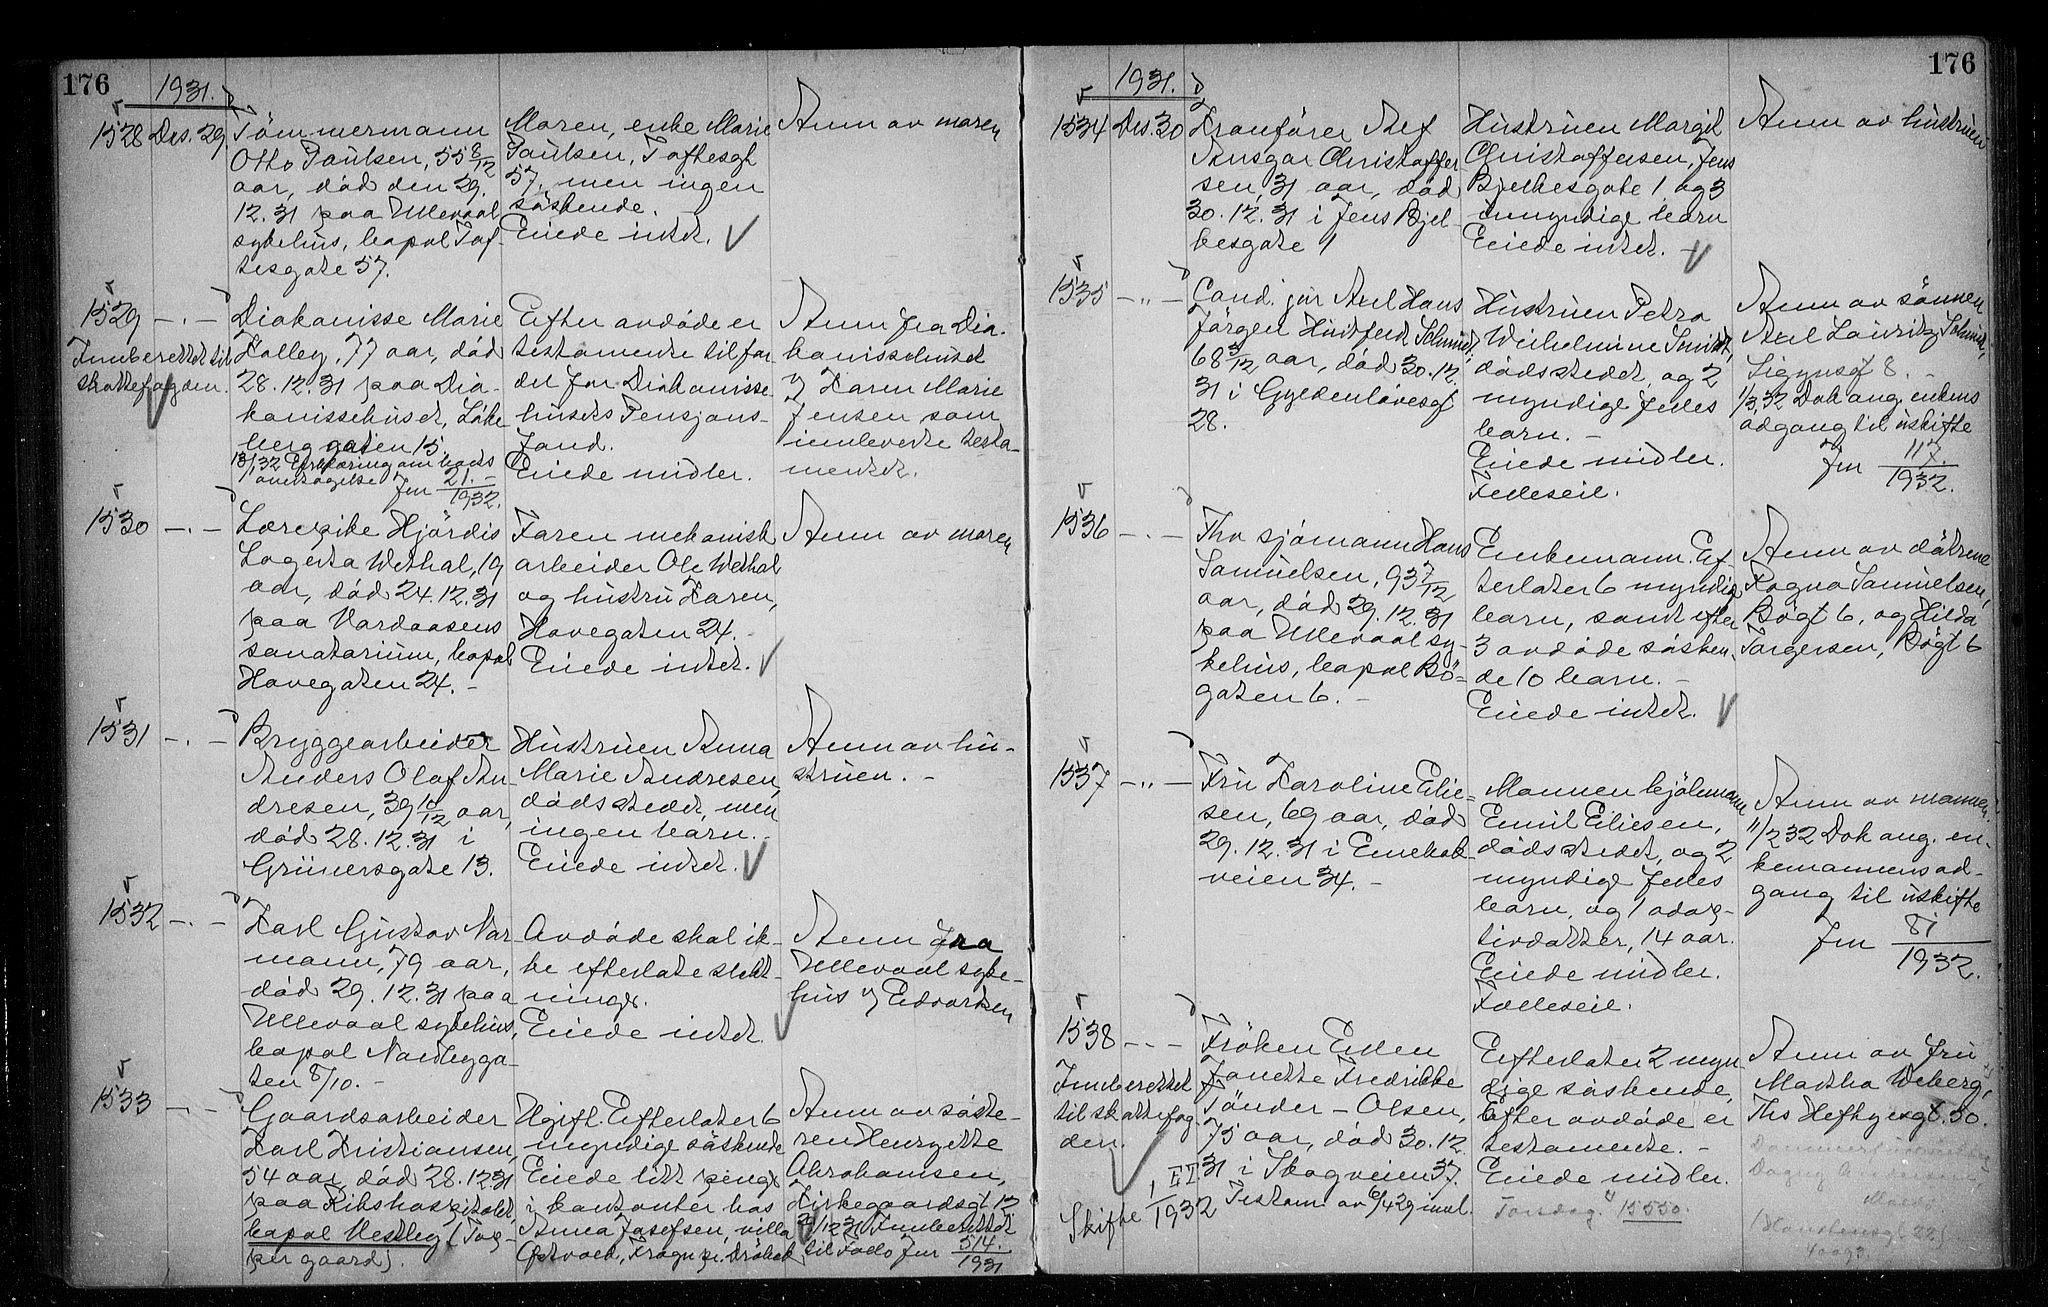 176
1931.
1528 Des. 29.
Tömmermann
Otto Paulsen, 55 8/12
aar, död den 29.
12.31 paa Ullevaal
sykehus, bopæl Tof-
tesgate 57.
Moren, enke Marie
Paulsen, Toftesgt
57, men ingen
söskende.
Eiede intet.
Anm av moren
1529 — . —
Innberettet til
skattefogden.
Diakonisse Marie
Kolley, 77 aar, död
28.12.31 paa Dia-
konissehuset, Löke-
berggaten 15.
13/1 32 Erklæring om bods
overtagelse Jnr 21. –
1932.
Efter avdöde er
testamente til for
del for Diakonisse
husets Pensjons-
fond.
Eiede midler.
Anm fra Dia-
konissehuset
v/ Karen Marie
Jensen, som
innleverte testa-
mentet.
1530 — . —
Lærepike Hjördis
Lagerta Wethal, 19
aar, död 24.12.31
paa Vardaasens
sanatorium, bopæl
Hovegaten 24. –
Faren mekanisk
arbeider Ole Wethal
og hustru Karen,
Hovegaten 24.
Eiede intet.
Anm av moren
1531 — . —
Bryggearbeider
Anders Olaf An-
dresen, 39 10/12 aar,
död 28.12.31 i
Grünersgate 13.
Hustruen Anna
Marie Andresen,
dödsstedet, men
ingen barn. –
Eiede intet.
Anm av hu-
struen. –
1532 — . —
Karl Gustav Nor-
mann, 79 aar,
död 29.12.31 paa
Ullevaal sykehus,
bopæl Nordbygga-
ten 8/10. –
Avdöde skal ik-
ke efterlate slekt-
ninger.
Eiede intet.
Anm fra
Ullevaal syke-
hus v/ Edvardsen
1533 — . —
Gaardsarbeider
Karl Kristiansen,
54 aar, död 28.12.31
paa Rikshospitalet,
bopæl Vestby (Tor-
per gaard).
Ugift. Efterlater 6
myndige söskende
Eiede litt penger
i kontanter hos
Anna Josefsen, villa
Östvold, Frogn pr. Dröbak
Anm av söste-
ren Henryette
Abrahamsen,
Kirkegaardsgt 12
31/12 31 Innberettet
til Follo Jnr 514.
1931
176
1931.
1534 Des. 30
Kranförer Alf
Ansgar Christoffer
sen, 31 aar, död
30.12.31 i Jens Bjel-
kesgate 1
Hustruen Margit
Christoffersen, Jens
Bjelkesgate 1 og 3
umyndige barn
Eiede intet. –
Anm av hustruen
1535 — „ —
Cand. jur Axel Hans
Jörgen Huitfeldt Schmidt,
68 5/12 aar, död 30.12.
31 i Gyldenlövesgt
28.
Hustruen Petra
Wilhelmine Smidt,
dödsstedet, og 2
myndige felles
barn. –
Eiede midler.
Felleseie.
Anm av sönnen
Axel Lauritz Schmidt,
Sigynsgt 8. –
1/3 32 Dok ang. enkens
adgang til uskifte
Jnr 117.
1932.
1536 — . —
Fhv sjömann Hans
Samuelsen, 93 7/12
aar, död 29.12.31
paa Ullevaal sy-
kehus, bopæl Bö-
gaten 6. –
Enkemann. Ef-
terlater 6 myndige
barn, samt efter
3 avdöde sösken-
de 10 barn. –
Eiede intet.
Anm av dötrene
Ragna Samuelsen,
Bögt 6, og Hilda
Torgersen, Bögt 6
1537 — „ —
Fru Karoline Elie-
sen, 69 aar, död
29.12.31 i Enebak-
veien 34. –
Mannen kjölemann
Emil Eliesen,
dödsstedet, og 2
myndige felles
barn, og 1 adop-
tivdatter, 14 aar.
Eiede midler.
Felleseie.
Anm av mannen.
11/2 32 Dok ang. en-
kemannens ad-
gang til uskifte
Jnr 81
1932.
1538 — . —
Innberettet
til skattefog-
den.
Skifte 1932
Fröken Ellen
Janette Fredrikke
Tönder–Olsen,
75 aar, död 30.12
31 i Skogveien 37.
Testam av 6/4 29 mot.
Efterlater 2 myn-
dige söskende,
Efter avdöde er
testamente. –
Eiede midler.
Torsdag 15550.
Anm av fru
Martha Weberg,
Ths Heftyesgt. 50.